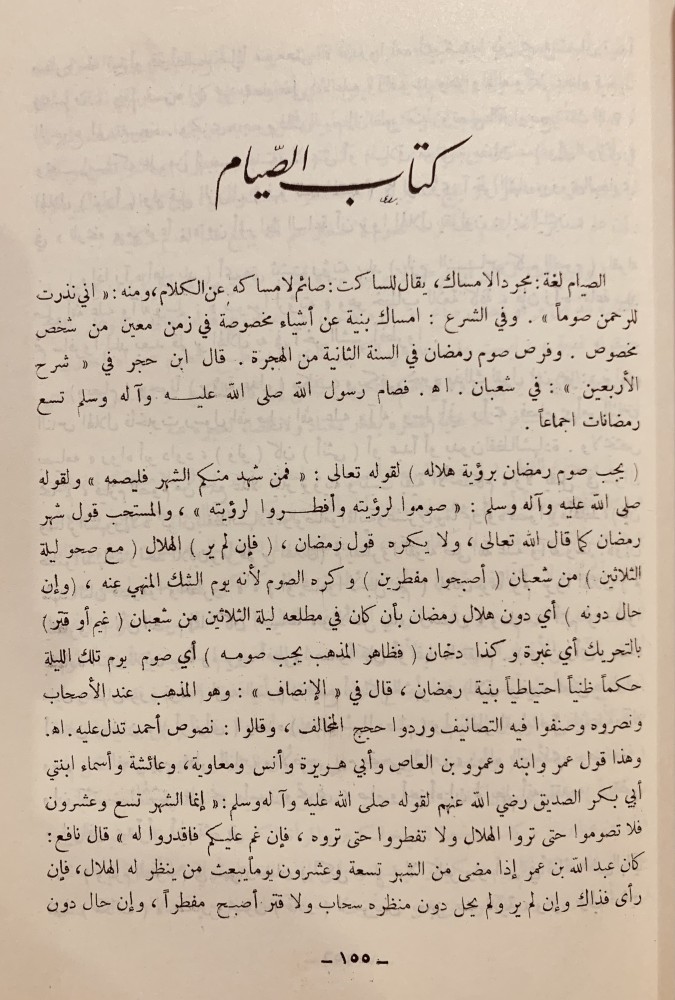 كتاب الصّيام
الصيام لغة : مجرد الامساك ، يقال للساكت : صائم لامساكه عن الكلام ، ومنه : « اني نذرت
للرحمن صوماً » . وفي الشرع : امساك بنية عن أشياء مخصوصة في زمن معين من شخص
مخصوص . وفرص صوم رمضان في السنة الثانية من الهجرة . قال ابن حجر في « شرح
الأربعين » : في شعبان . اه . فصام رسول الله صلى الله عليه وآله وسلم تسع
رمضانات اجماعاً .
( يجب صوم رمضان برؤية هلاله ) لقوله تعالى : « فمن شهد منكم الشهر فليصمه » ولقوله
صلى الله عليه وآله وسلم : « صوموا لرؤيته وأفطروا لرؤيته » ، والمستحب قول شهر
رمضان كما قال الله تعالى ، ولا يكره قول رمضان ، ( فإن لم ير ) الهلال ( مع صحو ليلة
الثلاثين ) من شعبان ( أصبحوا مفطرين ) وكره الصوم لأنه يوم الشك المنهي عنه ، (وإن
حال دونه ) أي دون هلال رمضان بأن كان في مطلعه ليلة الثلاثين من شعبان ( غيم أو قتر)
بالتحريك أي غبرة وكذا دخان ( فظاهر المذهب يجب صومه ) أي صوم يوم تلك الليلة
حكماً ظنياً احتياطياً بنية رمضان ، قال في « الإنصاف » : وهو المذهب عند الأصحاب
ونصروه وصنفوا فيه التصانيف وردوا حجج المخالف ، وقالوا : نصوص أحمد تدل عليه . اه.
وهذا قول عمر وابنه وعمرو بن العاص وأبي هريرة وأنس ومعاوية، وعائشة وأسماء ابنتي
أبي بكر الصديق رضي الله عنهم لقوله صلى الله عليه وآله وسلم: « إنما الشهر تسع وعشرون
فلا تصوموا حتى تروا الهلال ولا تفطروا حتى تروه ، فإن غم عليكم فاقدروا له » قال نافع :
كان عبد الله بن عمر إذا مضى من الشهر تسعة وعشرون يوماً يبعث من ينظر له الهلال، فإن
رأى فذاك وإن لم ير ولم يحل دون منظره سحاب ولا قتر أصبح مفطراً ، وإن حال دون
– ١٥٥ –